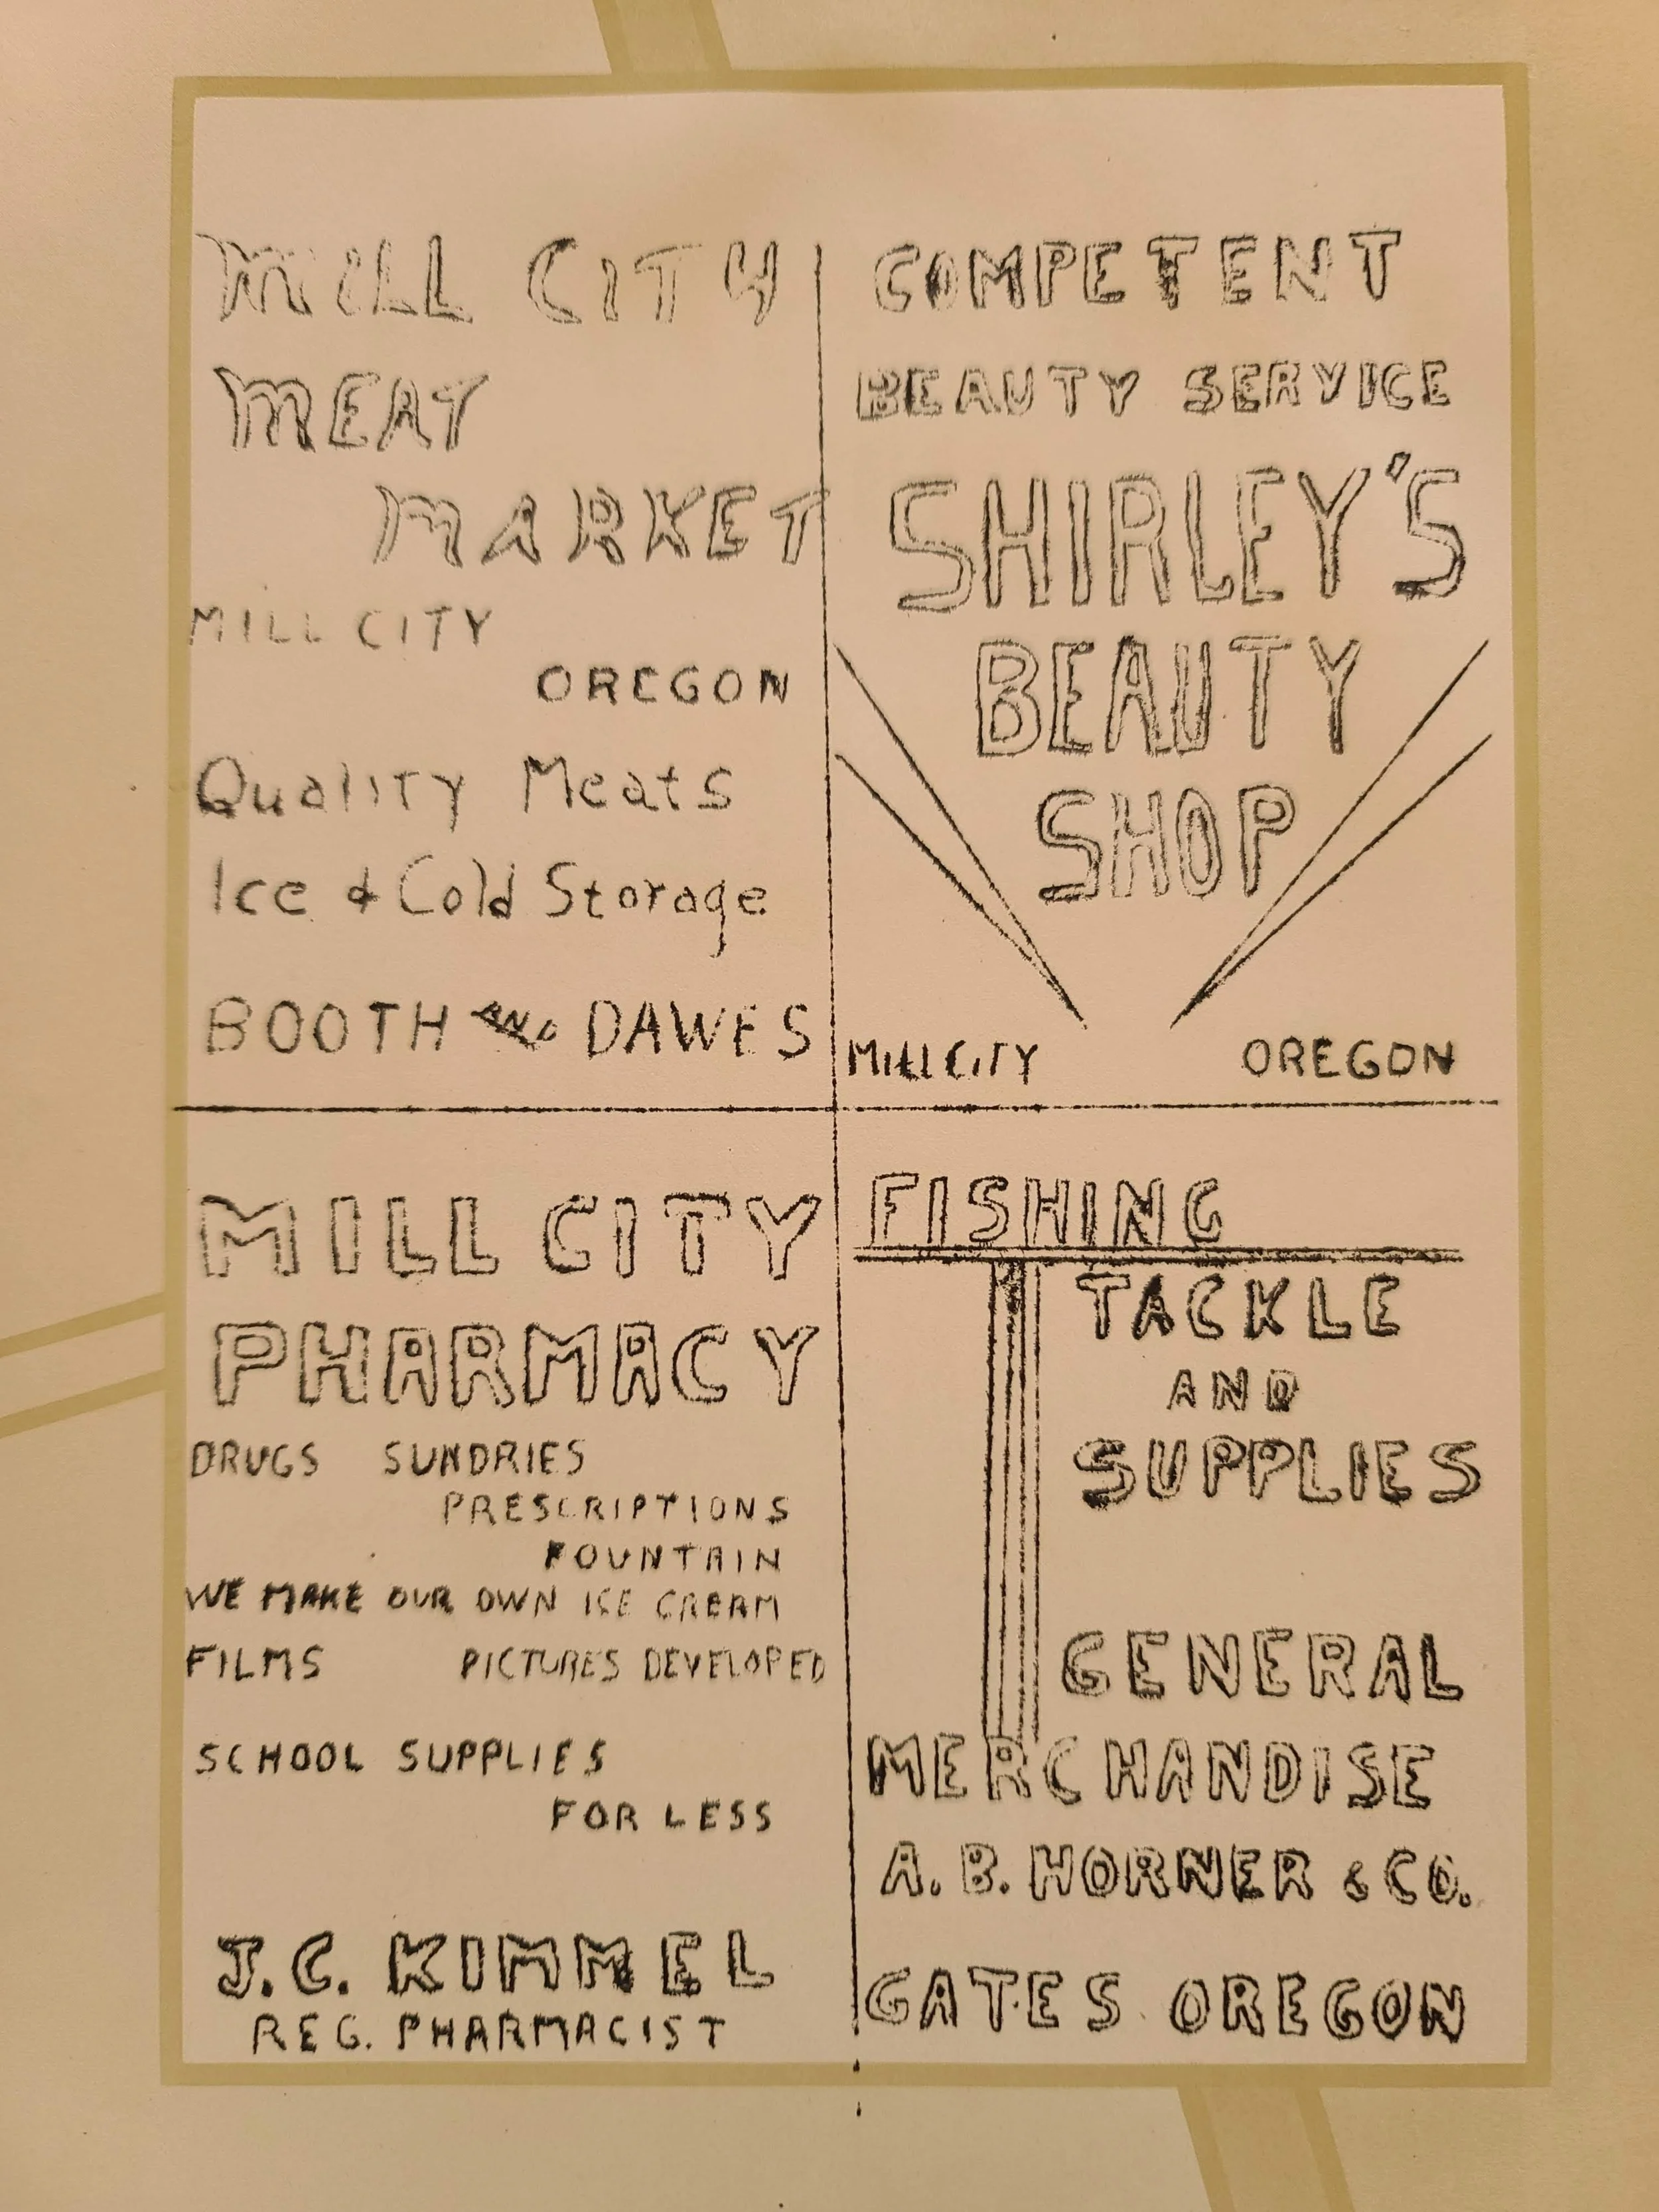 MILL CITY
MEAT
MARKET
MILL CITY
OREGON
Quality Meats
Ice & Cold Storage
BOOTH AND DAWES
COMPETENT
BEAUTY SERVICE
SHIRLEY'S
BEAUTY
SHOP
MILL CITY OREGON
MILL CITY
PHARMACY
DRUGS SUNDRIES
PRESCRIPTIONS
FOUNTAIN
WE MAKE OUR OWN ICE CREAM
FILMS PICTURES DEVELOPED
SCHOOL SUPPLIES
FOR LESS
J.C. KIMMEL
REG. PHARMACIST
FISHING
TACKLE
AND
SUPPLIES
GENERAL
MERCHANDISE
A. B. HORNER & CO.
GATES OREGON